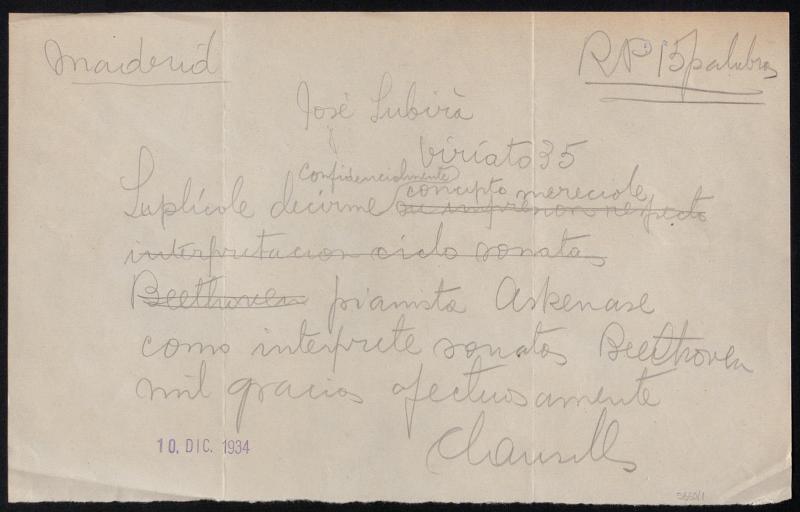 Madrid
RP 15 palabras
José Subirà
Viriato 35
Confidencialmente
concepto mereciole
Suplícole decirme su impresion respecto
interpretacion ciclo sonatas
Beethoven pianista Askenase
como interprete sonatas Beethoven
mil gracias afectuosamente
Clausells
10. DIC. 1934
5650/1